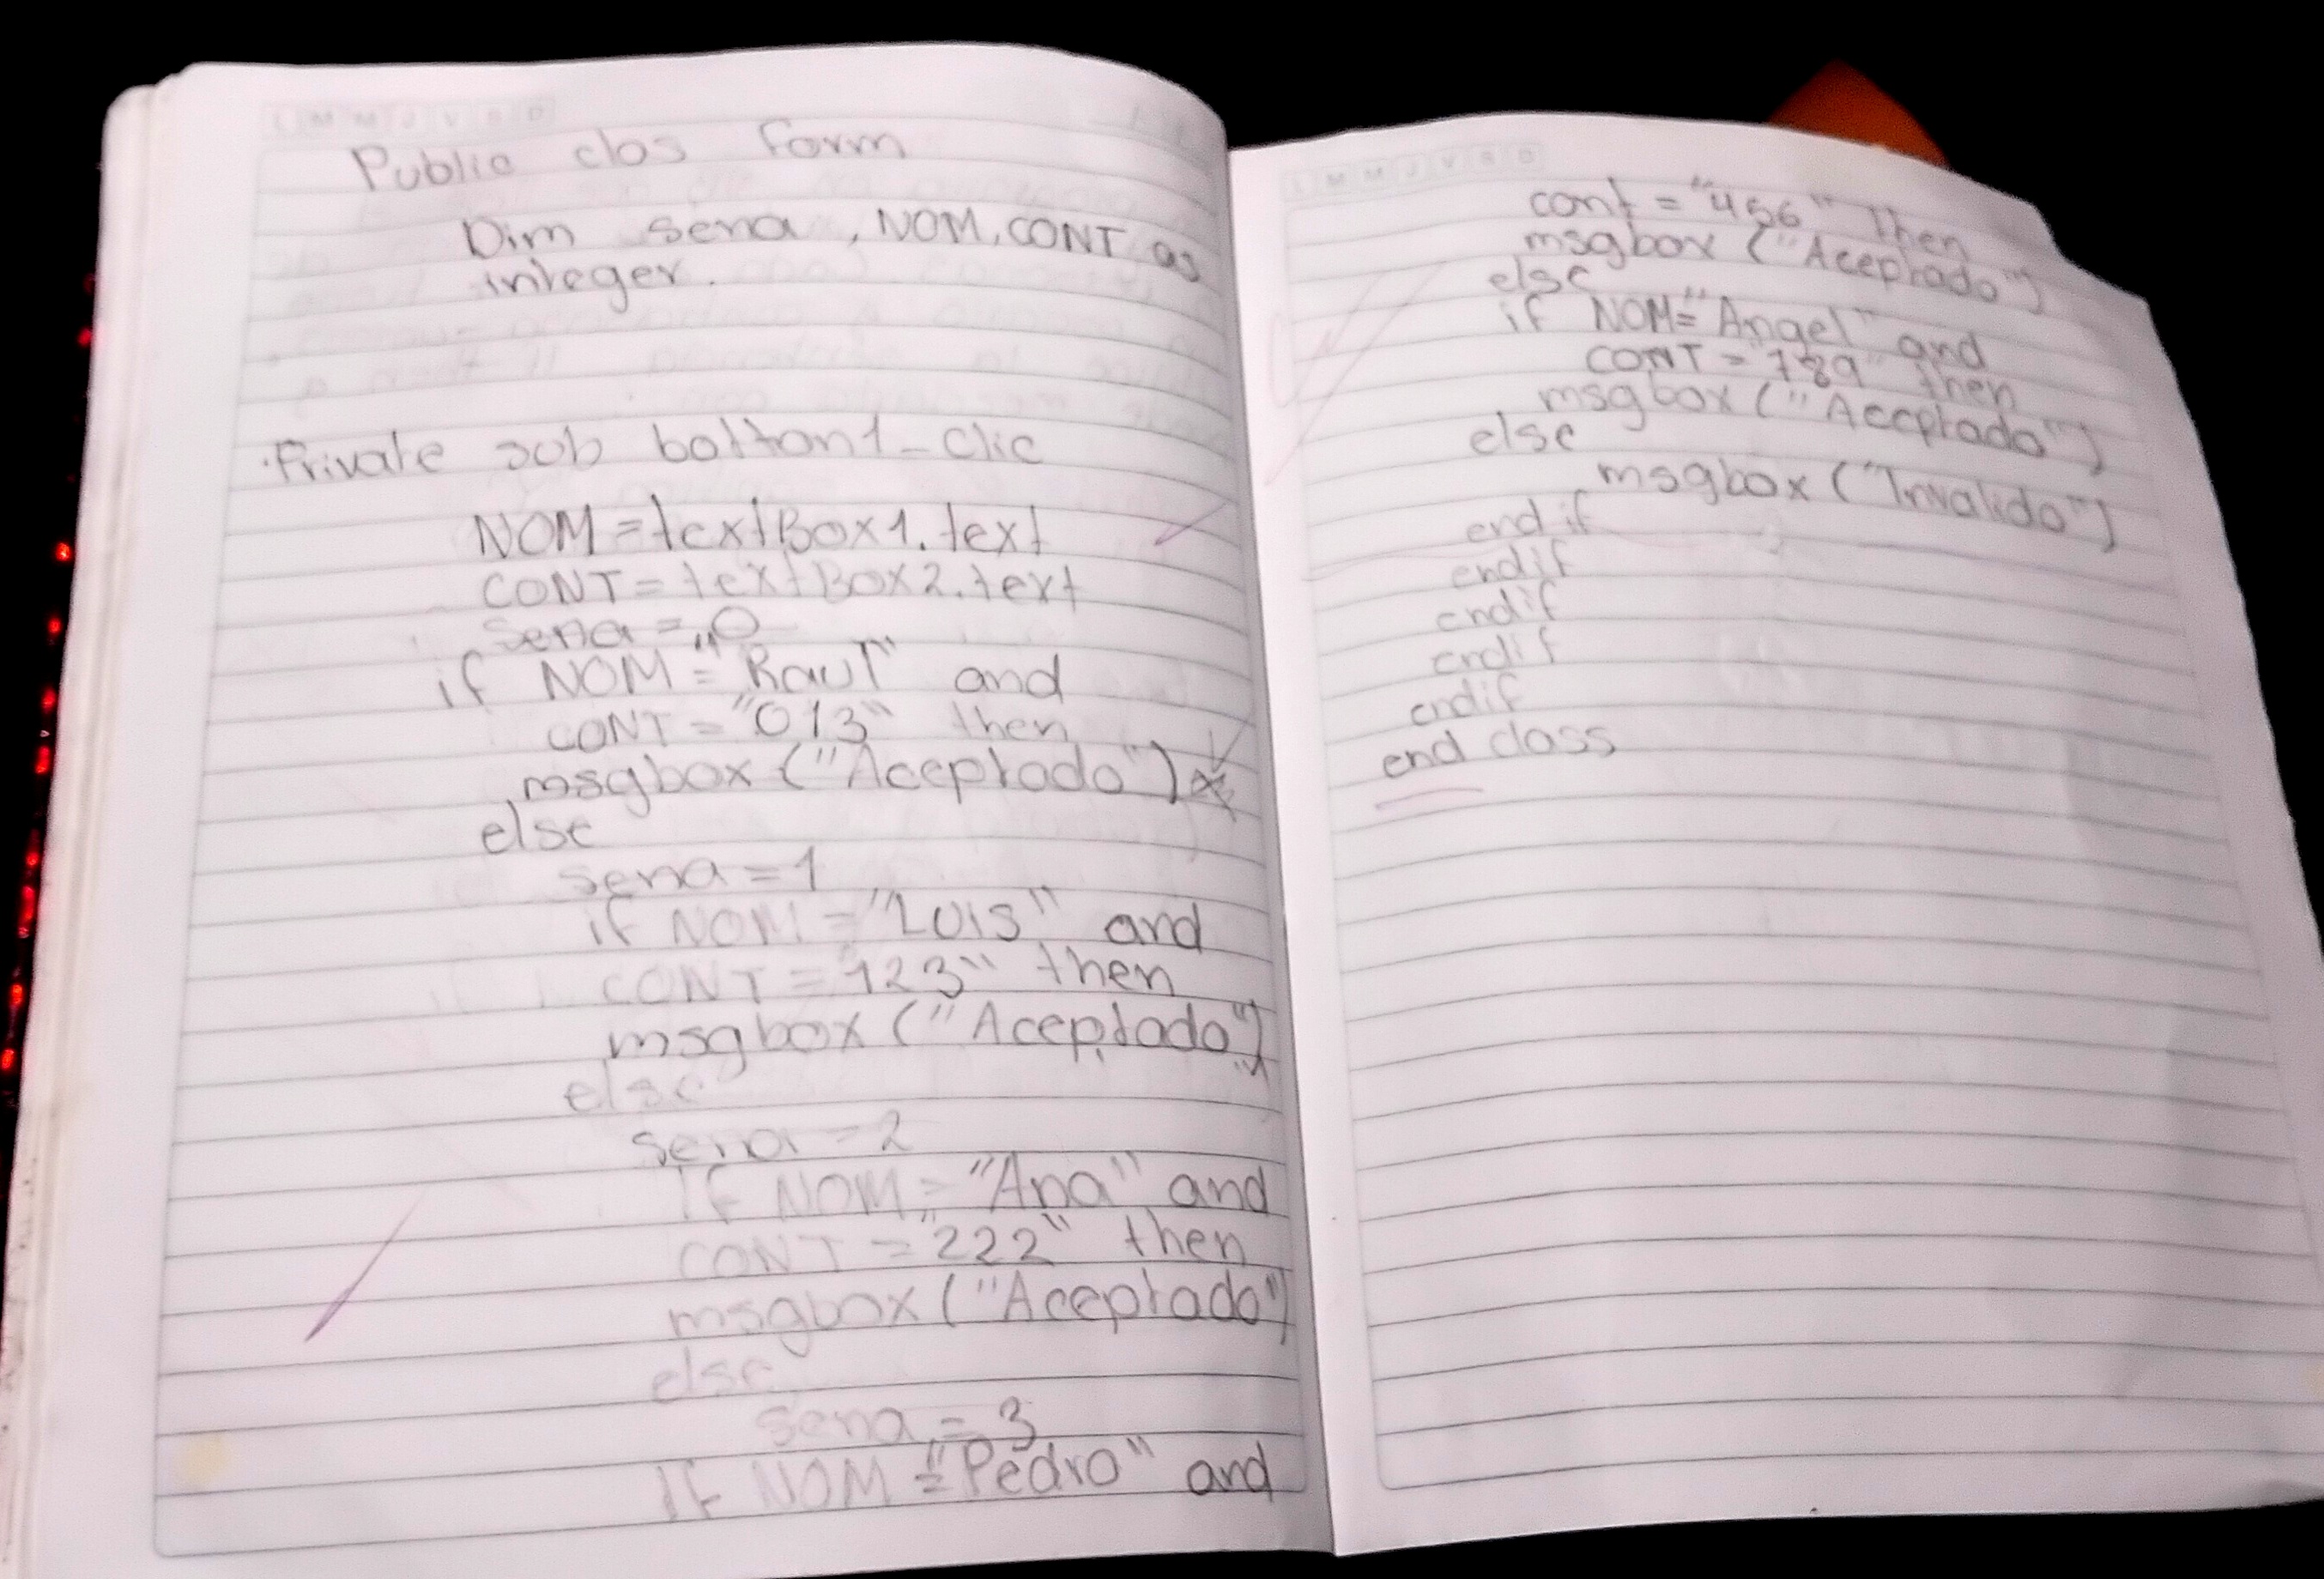 Public clas form
Dim sena, NOM, CONT as
integer.
Private sub botton1_Clic
NOM = textBox1.text
CONT = textBox2.text
sena = 0
if NOM = "Raul" and
CONT = "013" then
msgbox ("Aceptado")
else
sena = 1
if NOM = "Luis" and
CONT = "123" then
msgbox ("Aceptado")
else
sena = 2
If NOM = "Ana" and
CONT = "222" then
msgbox ("Aceptado")
else
sena = 3
If NOM = "Pedro" and
cont = "456" Then
msgbox ("Aceptado")
else
if NOM = "Angel" and
CONT = "789" then
msgbox ("Aceptado")
else
msgbox ("Invalido")
end if
endif
endif
endif
endif
end class